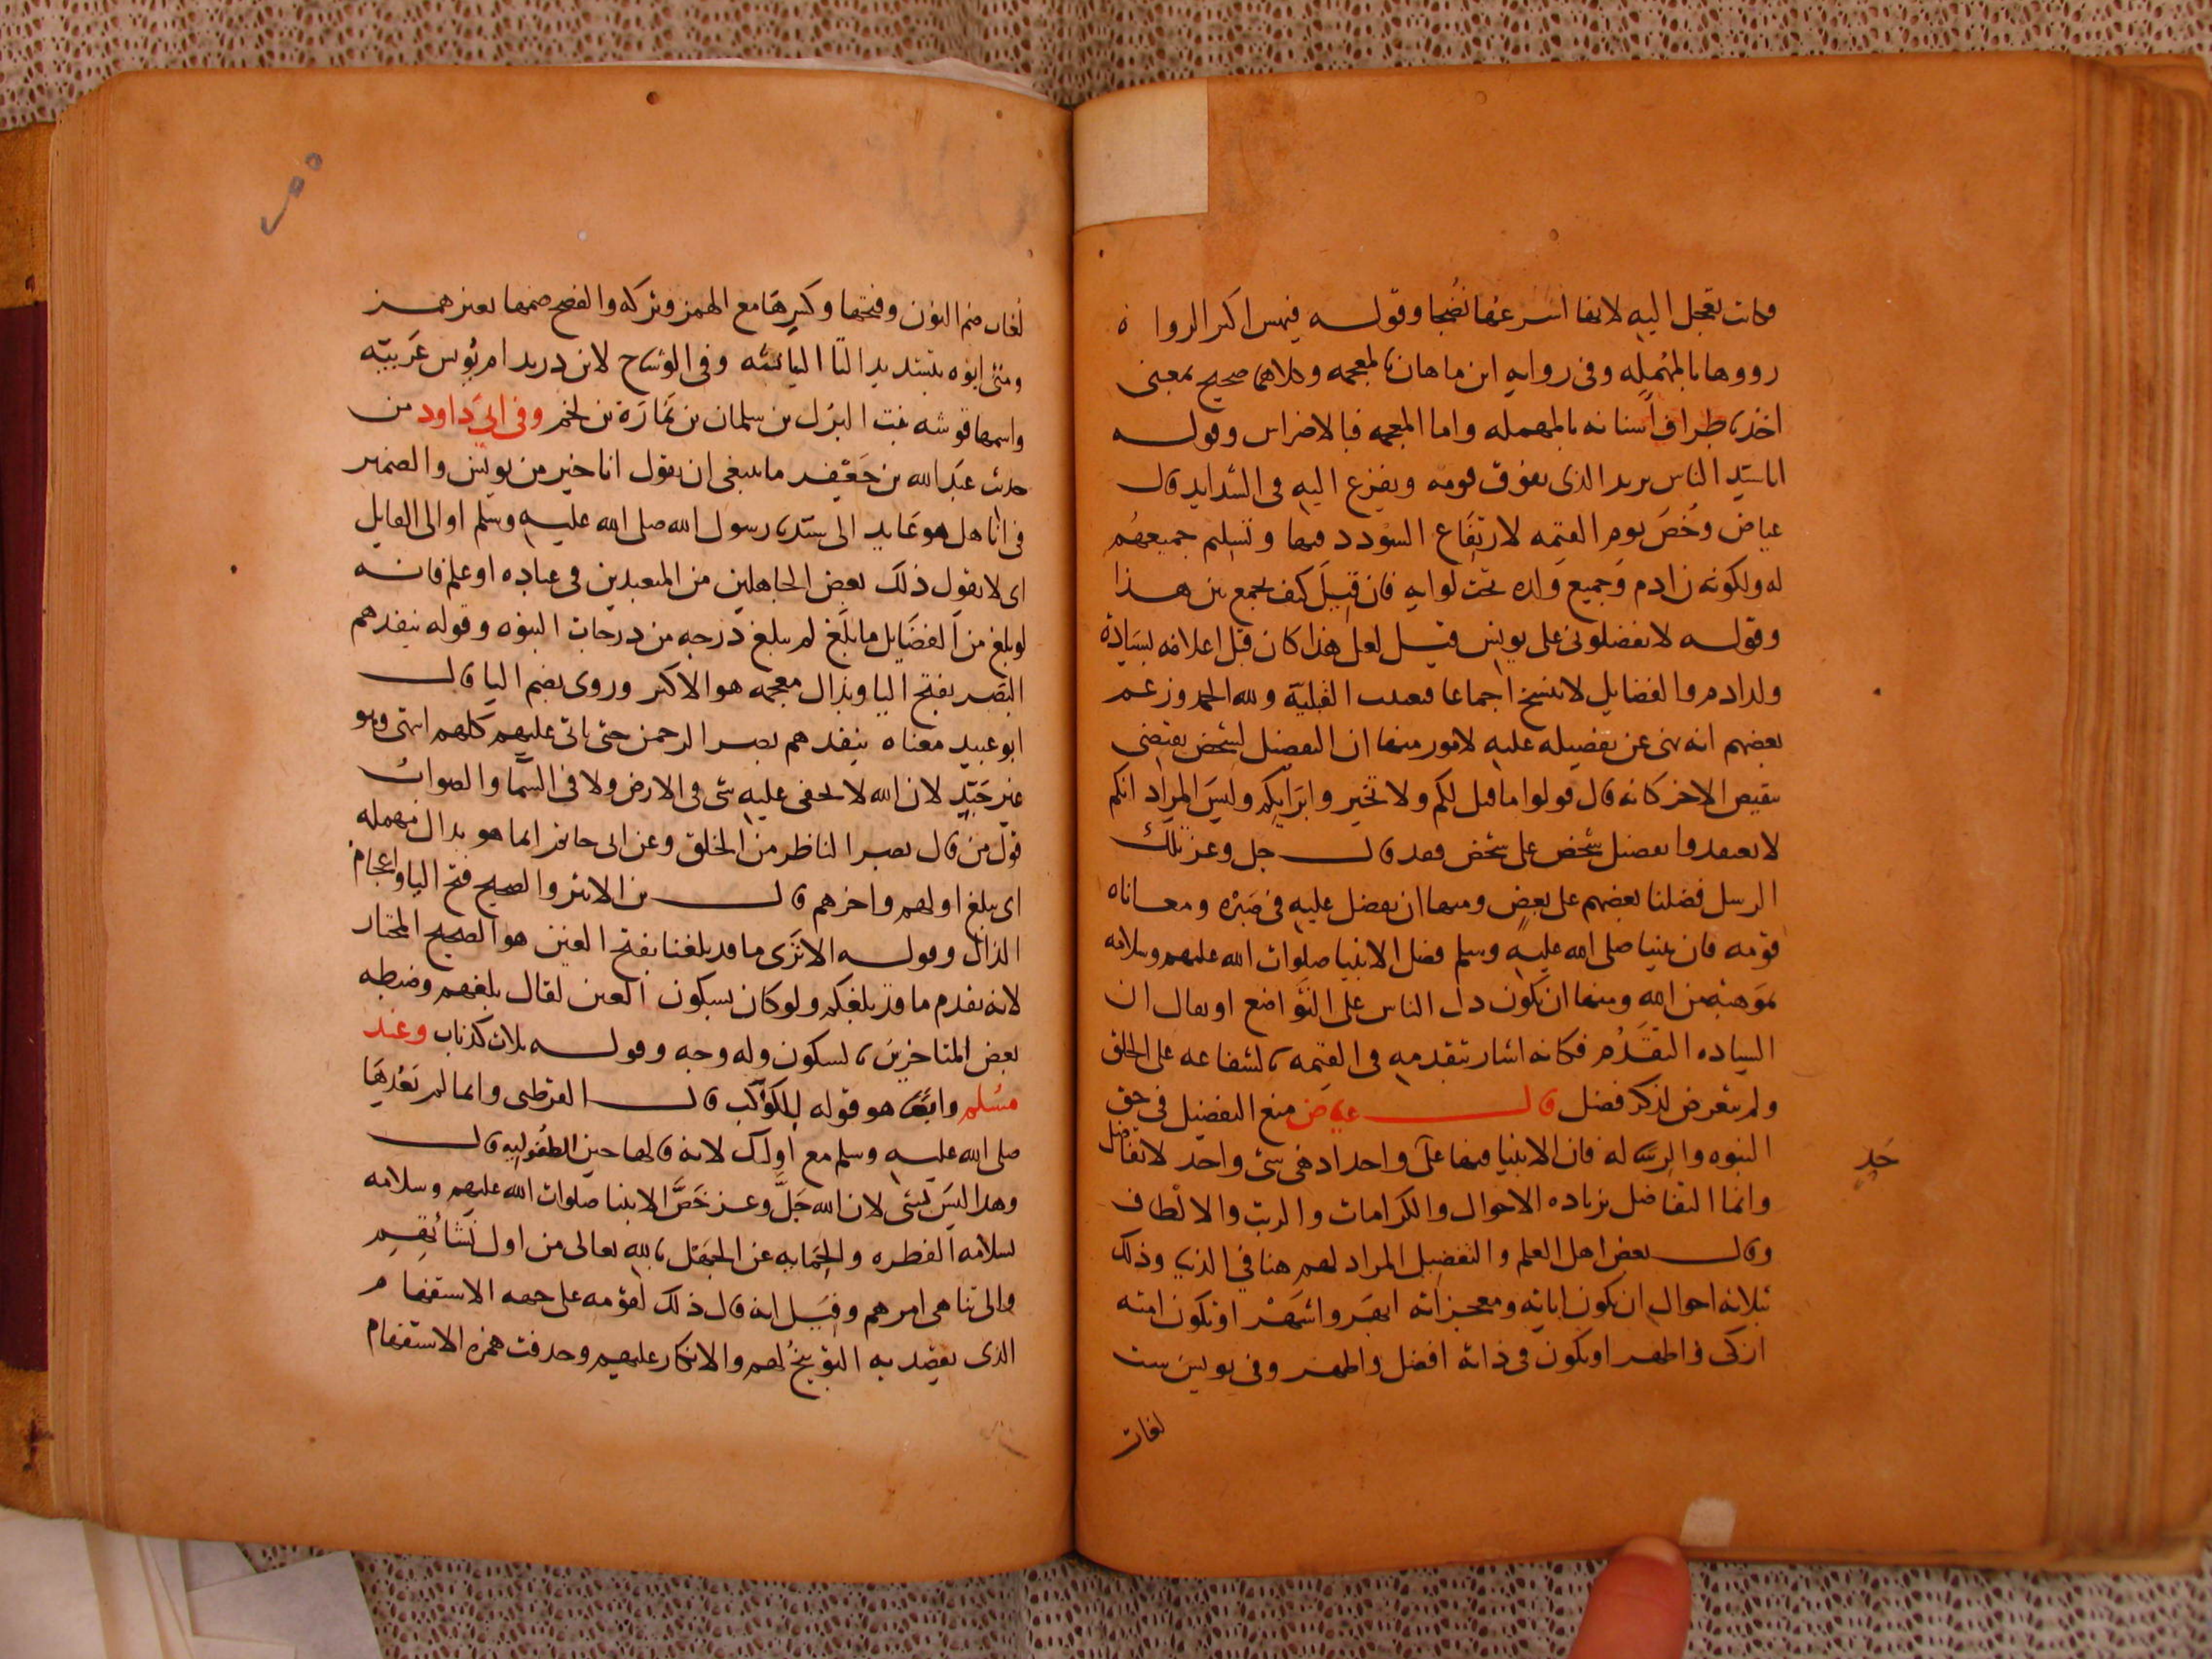 وكانت تعجل اليه لانها اسرعها نضجا وقوله فنهس اكثر الرواة
رووها بالمهمله وفى روايه ابن ماهان بالمعجمه وكلاهما صحيح بمعنى
اخذ باطراف اسنانه بالمهمله واما المعجمه فبالاضراس وقوله
انا سيد الناس يريد الذى يفوق قومه ويفزع اليه فى الشدايد قال
عياض وخص يوم القيمه لارتفاع السودد فيها وتسليم جميعهم
له ولكونه ادم وجميع ولده تحت لوايه فان قيل كيف يجمع بين هذا
وقوله لا تفضلونى على يونس قيل لعل هذا كان قبل اعلامه بسيادة
ولد ادم والفضايل لا تنسخ اجماعا القبلية ولله الحمد وزعم
بعضهم انه نهى عن تفضيله عليه لامور منها ان التفضيل لشخص يقتضى
نقيص الاخر كانه قال قولوا ما قيل لكم ولا تخير وليس المراد انكم
لا تعتقدوا تفضيل شخص على شخص فقد قال جل وعز تلك
الرسل فضلنا بعضهم على بعض ومنها ان يفضل عليه فى صبره ومعاناه
قومه فان نبينا صلى الله عليه وسلم فضل الانبيا صلوات الله عليهم وسلامه
بموهبة من الله ومنها ان يكون دل الناس على التواضع او يقال ان
السياده التقدم فكانه اشار بتقدمه فى القيمه بالشفاعه على الخلق
ولم يتعرض لذكر فضل قال عياض منع التفضيل فى حق
النبوه والرساله فان الانبيا فيها على واحد اذ هى شى واحد لا تتفاضل
حد
وانما التفاضل بزياده الاحوال والكرامات والرتب والالطاف
وقال بعض اهل العلم والتفضيل المراد لهم هنا فى الدنيا وذلك
بثلاثة احوال ان تكون اياته ومعجزاته ابهر واشهر او تكون امته
ازكى واطهر او يكون فى ذاته افضل واطهر وفى يونس ست
لغات
لغات ضم النون وفتحها وكسرها مع الهمز وتركه والفصح ضمها بغير همز
ومتى ابوه بتشديد التا وفى الوشاح لابن دريد ام يونس عربية
واسمها بنت البزل بن سلمان بن نمارة بن لخم وفى ابى داود من
حديث عبد الله بن جعفر ما ينبغى ان يقول انا خير من يونس والضمير
فى انا هل هو عايد الى سيدنا رسول الله صلى الله عليه وسلم او الى القايل
اى لا يقول ذلك بعض الجاهلين من المتعبدين فى عباده او علم فانه
لو بلغ من الفضايل ما بلغ لم يبلغ درجه من درجات النبوه وقوله ينفدهم
البصر بفتح اليا وبذال معجمه هو الاكثر وروى بضم اليا قال
ابو عبيد معناه ينفذهم بصر الرحمن حتى ياتى عليهم كلهم انتهى وهو
غير جيد لان الله لا يخفى عليه شى فى الارض ولا فى السما والصواب
قول من قال بصر الناظر من الخلق وعن ابى حاتم انما هو بدال مهمله
اى يبلغ اولهم واخرهم قال بن الاثير والصحيح فتح اليا واعجام
الذال وقوله الا ترى ما قد بلغنا بفتح الغين هو الصحيح المختار
لانه تقدم ما قد بلغكم ولو كان بسكون الغين لقال بلغهم وضبطه
بعض المتاخرين بالسكون وله وجه وقوله ثلاث كذبات وعند
مسلم وايضا هو قوله للكوكب قال القرطبى وانما لم يعدها
صلى الله عليه وسلم مع اولئك لانه قالها حين الطفوليه قال
وهذا ليس بشى لان الله جل وعز خص الانبيا صلوات الله عليهم وسلامه
بسلامه الفطره والحمايه عن الجهل بالله تعالى من اول نشاتهم
والى تناهى امرهم وقيل انه قال ذلك لقومه على جهه الاستفهام
الذى يقصد به التوبيخ لهم والانكار عليهم وحذفت همزه الاستفهام